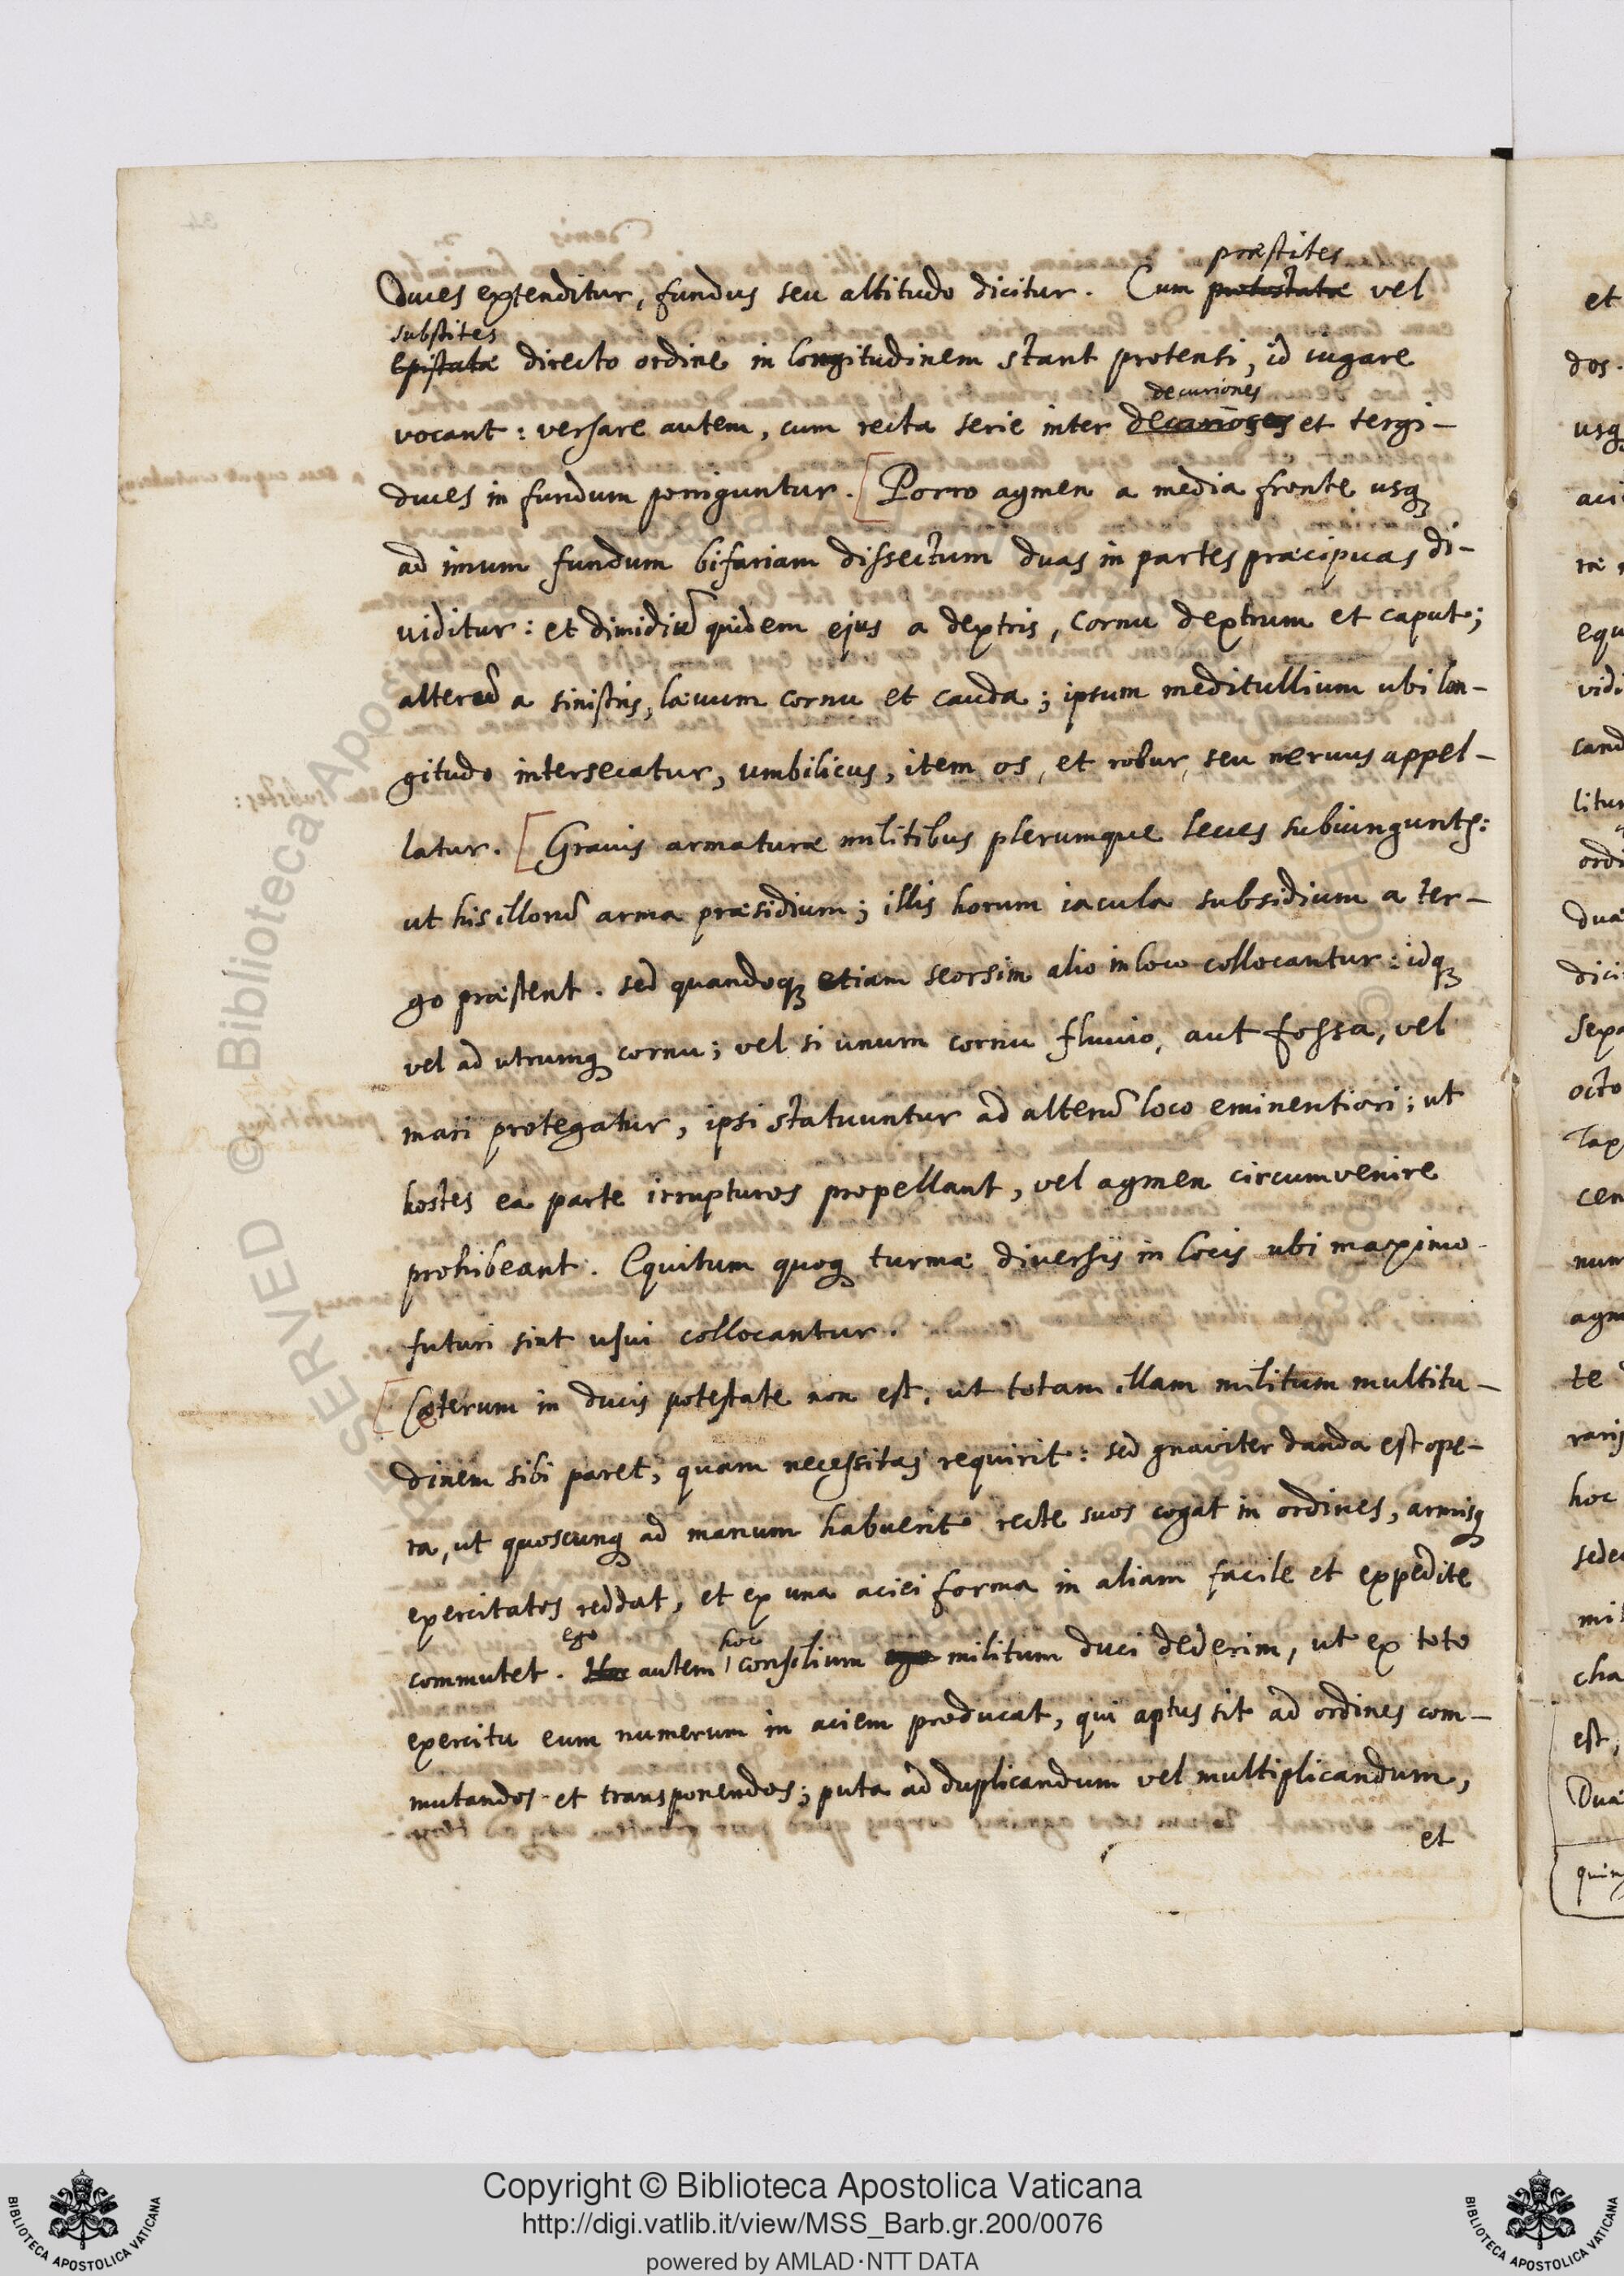 præstites
Duces extenditur, fundus seu altitudo dicitur. Cum protostatæ vel
substites
Epistatæ directo ordine in longitudinem stant protensi, id iugare
decuriones
vocant: versare autem, cum recta serie inter et tergi-
duces in fundum porriguntur. [Porro agmen a media fronte usq
ad imum fundum bifariam dissectum duas in partes præcipuas di-
viditur: et dimidiũ quidem ejus a dextris, cornu dextrum et caput;
alterũ a sinistris, lævum cornu et cauda; ipsum meditullium ubi lon-
gitudo intersecatur, umbilicus, item os, et robur, seu nervus appel-
latur. [Gravis armaturæ militibus plerumque leves subiunguntr:
ut his illorũ arma præsidium; illis horum iacula subsidium a ter-
go præstent. sed quandoq etiam seorsim alio in loco collocantur: idq
vel ad utrumq cornu; vel si unum cornu fluvio, aut fossa, vel
mari protegatur, ipsi statuuntur ad alterũ loco eminentiori; ut
hostes ea parte irrupturos propellant, vel agmen circumvenire
prohibeant. Equitum quoq turmæ diversis in locis ubi maximo
futuri sint usui collocantur.
[Cæterum in ducis potestate non est, ut totam illam militum multitu-
dinem sibi paret, quam necessitas requirit: sed gnaviter danda est ope-
ra, ut quoscunq ad manum habuerit recte suos cogat in ordines, armisq
exercitatos reddat, et ex una aciei forma in aliam facile et expedite
ego hoc
commutet. Hoc autem consilium ego militum duci dederim, ut ex toto
exercitu eum numerum in aciem producat, qui aptus sit ad ordines com-
mutandos et transponendos; puta ad duplicandum vel multiplicandum,
et
Copyright © Biblioteca Apostolica Vaticana
http://digi.vatlib.it/view/MSS_Barb.gr.200/0076
powered by AMLAD·NTT DATA
BIBLIOTECA APOSTOLICA VATICANA
BIBLIOTECA APOSTOLICA VATICANA